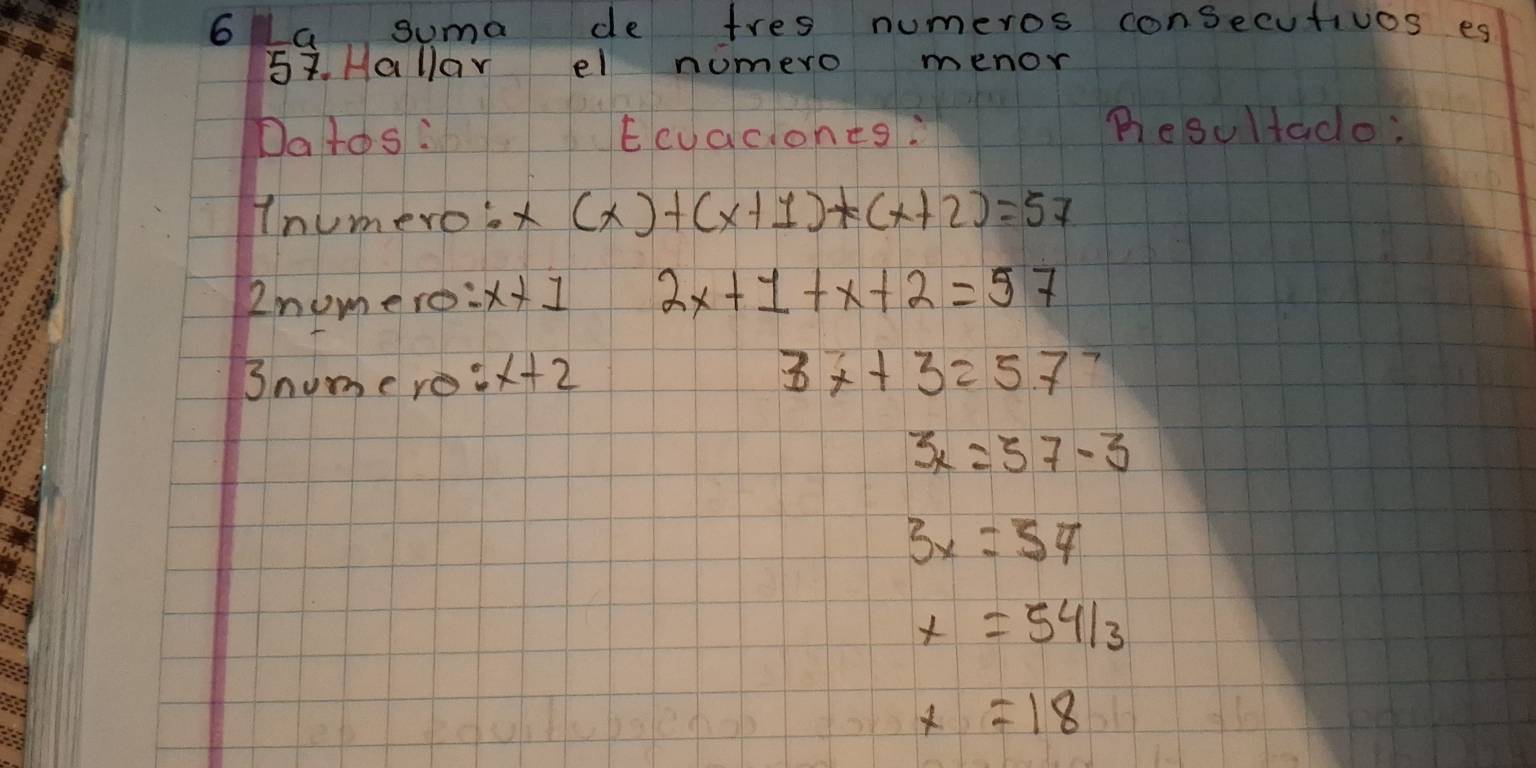 6 La suma de tres numeros consecutivos es
57. Hallar el número menor
Datos: Ecuaciones: Resultado:
1numero:x (x)+(x+1)+(x+2)=57
2numero:x+1 2x+1+x+2=57
3numero:x+2 3x+3=57
3x=57-3
3x=54
x=54/3
x=18